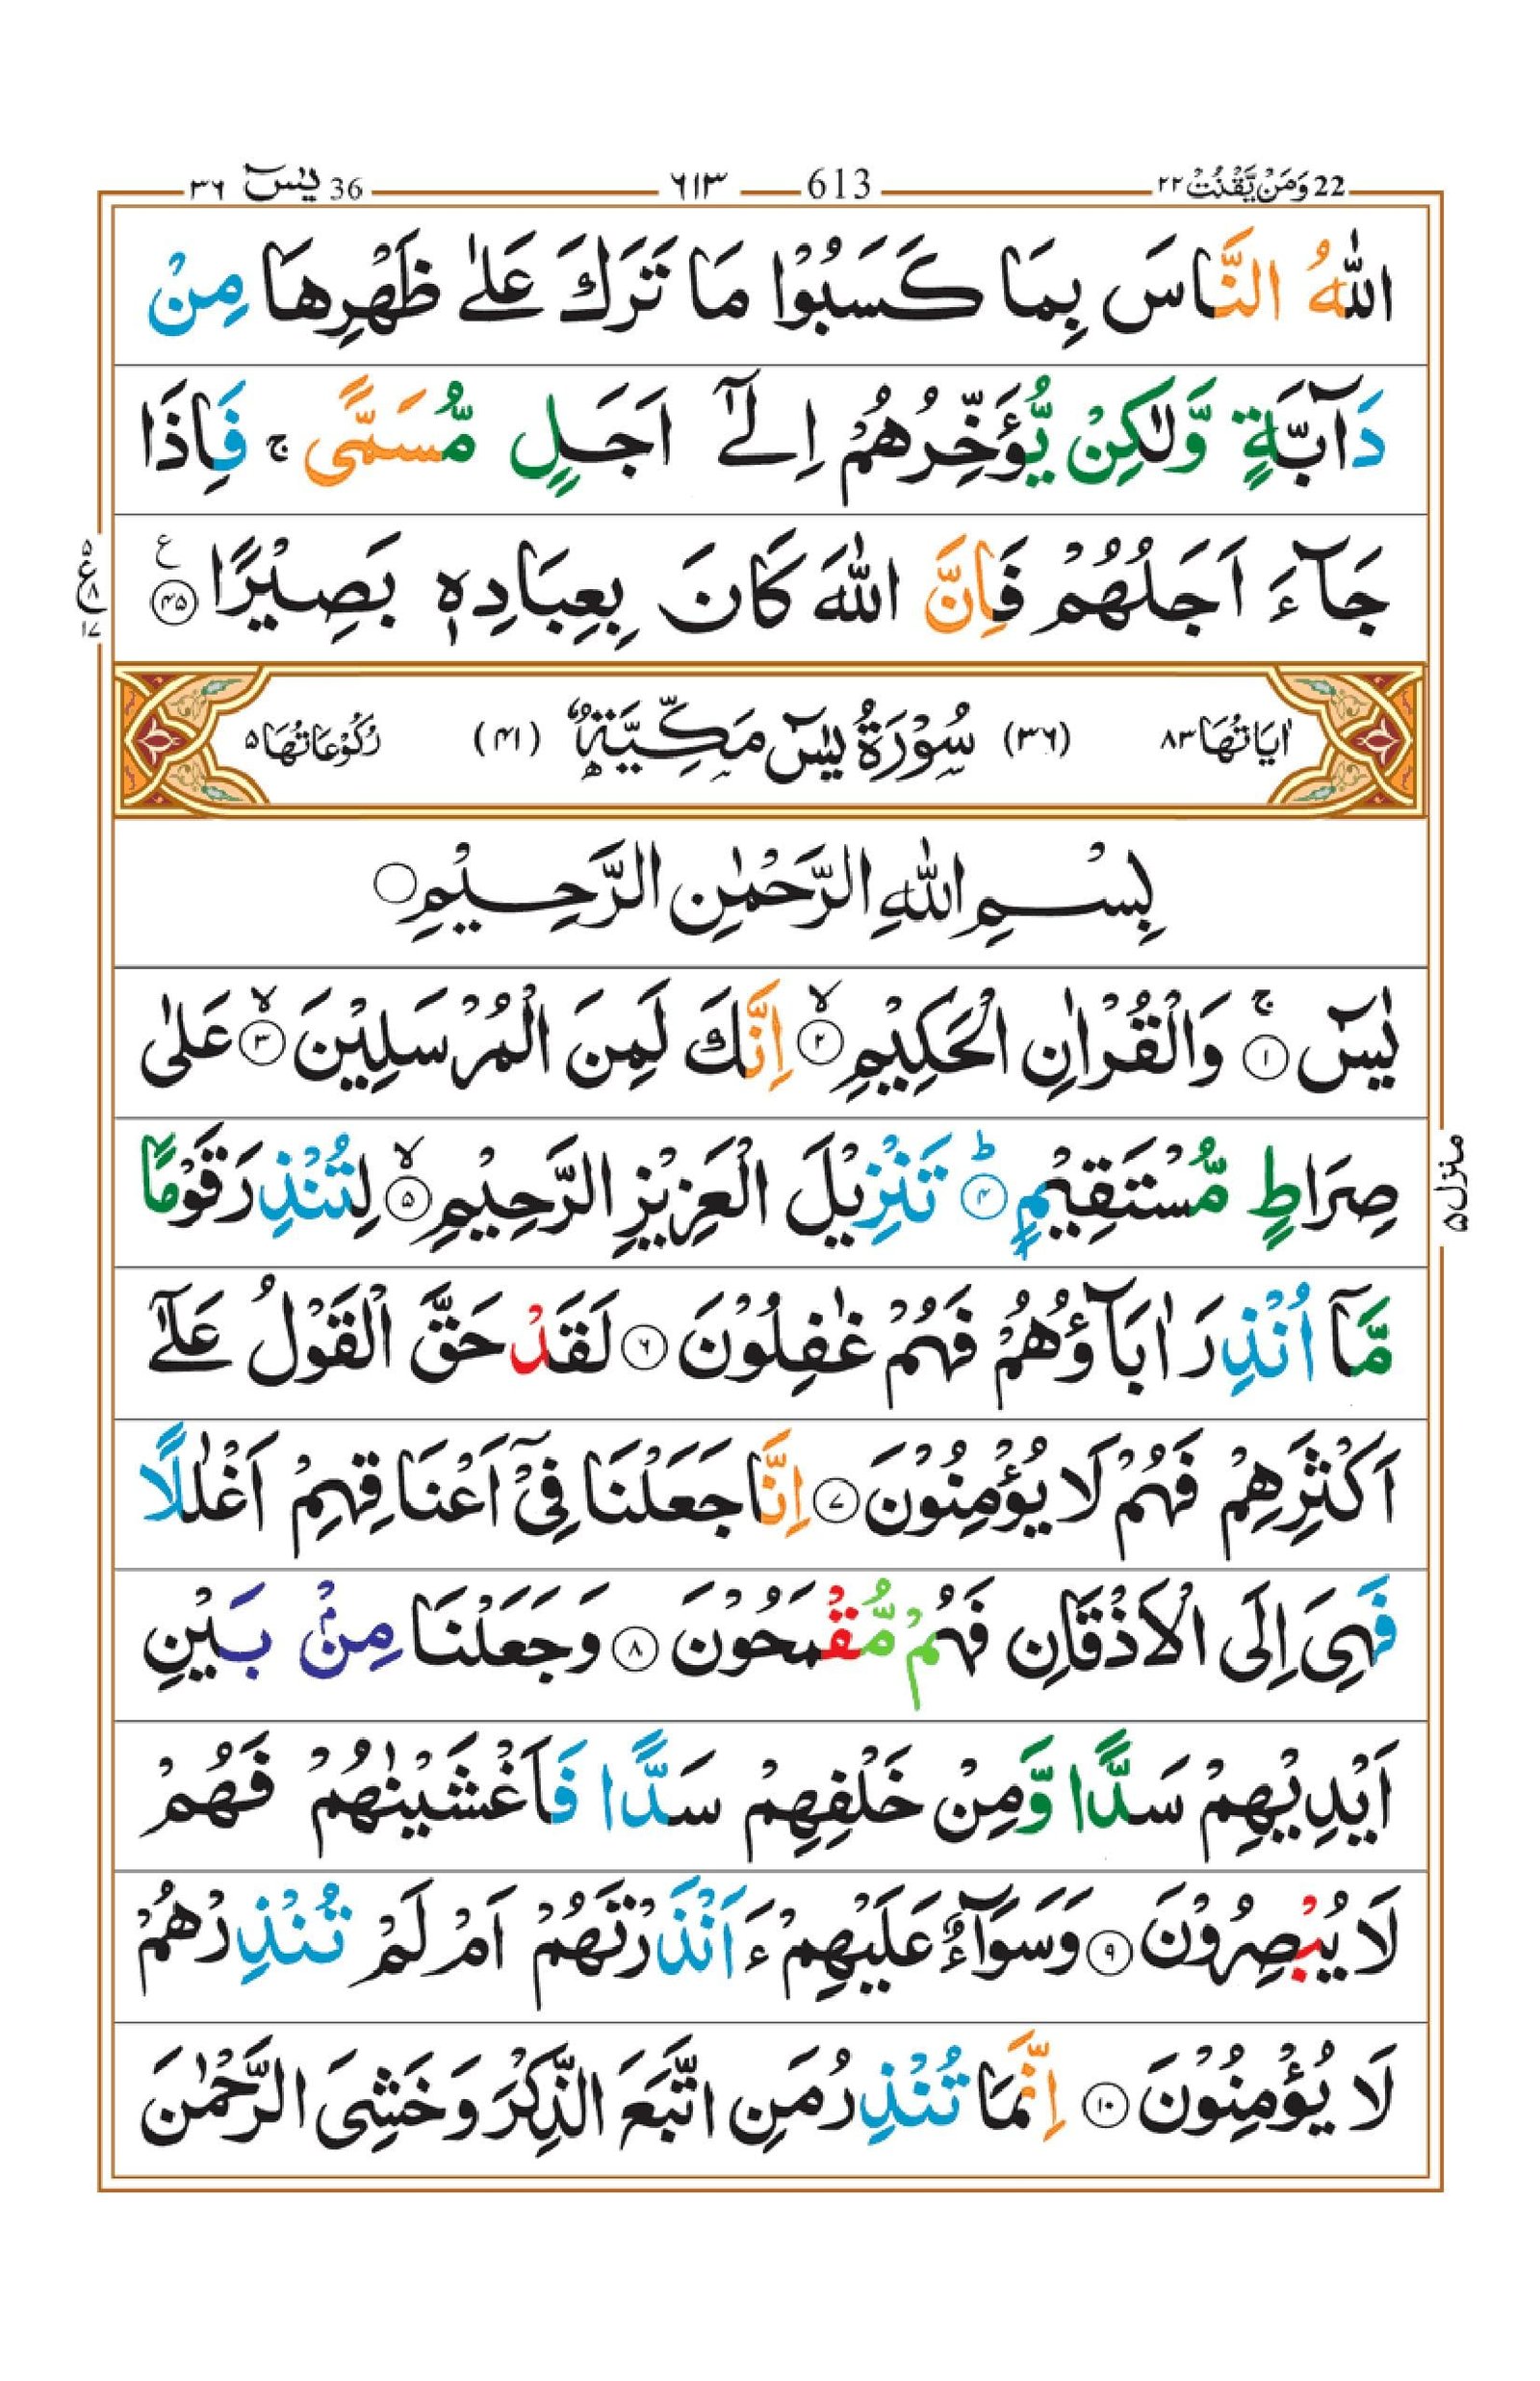 22 وَمَنْ يَّقْنُتْ ٢٢ 613 ٦١٣ 36 يٰسٓ ٣٦
اللّٰهُ النَّاسَ بِمَا كَسَبُوْا مَا تَرَكَ عَلٰى ظَهْرِهَا مِنْ
دَآبَّةٍ وَّلٰكِنْ يُّؤَخِّرُهُمْ اِلٰٓى اَجَلٍ مُّسَمًّى ۚ فَاِذَا
جَآءَ اَجَلُهُمْ فَاِنَّ اللّٰهَ كَانَ بِعِبَادِهٖ بَصِيْرًا ۴۵ ع
۵ ع ۸ ١٧
اٰيَاتُهَا ٨٣ (٣٦) سُوْرَةُ يٰسٓ مَكِّيَّةٌ (۴١) رُكُوْعَاتُهَا ۵
بِسْمِ اللّٰهِ الرَّحْمٰنِ الرَّحِيْمِ
يٰسٓ ۚ ١ وَالْقُرْاٰنِ الْحَكِيْمِ ۙ ٢ اِنَّكَ لَمِنَ الْمُرْسَلِيْنَ ۙ ٣ عَلٰى
صِرَاطٍ مُّسْتَقِيْمٍ ؕ ۴ تَنْزِيْلَ الْعَزِيْزِ الرَّحِيْمِ ۙ ۵ لِتُنْذِرَ قَوْمًا
منزل ۵
مَّآ اُنْذِرَ اٰبَآؤُهُمْ فَهُمْ غٰفِلُوْنَ ۶ لَقَدْ حَقَّ الْقَوْلُ عَلٰٓى
اَكْثَرِهِمْ فَهُمْ لَا يُؤْمِنُوْنَ ٧ اِنَّا جَعَلْنَا فِيْٓ اَعْنَاقِهِمْ اَغْلٰلًا
فَهِيَ اِلَى الْاَذْقَانِ فَهُمْ مُّقْمَحُوْنَ ٨ وَجَعَلْنَا مِنْۢ بَيْنِ
اَيْدِيْهِمْ سَدًّا وَّمِنْ خَلْفِهِمْ سَدًّا فَاَغْشَيْنٰهُمْ فَهُمْ
لَا يُبْصِرُوْنَ ٩ وَسَوَآءٌ عَلَيْهِمْ ءَاَنْذَرْتَهُمْ اَمْ لَمْ تُنْذِرْهُمْ
لَا يُؤْمِنُوْنَ ١٠ اِنَّمَا تُنْذِرُ مَنِ اتَّبَعَ الذِّكْرَ وَخَشِيَ الرَّحْمٰنَ